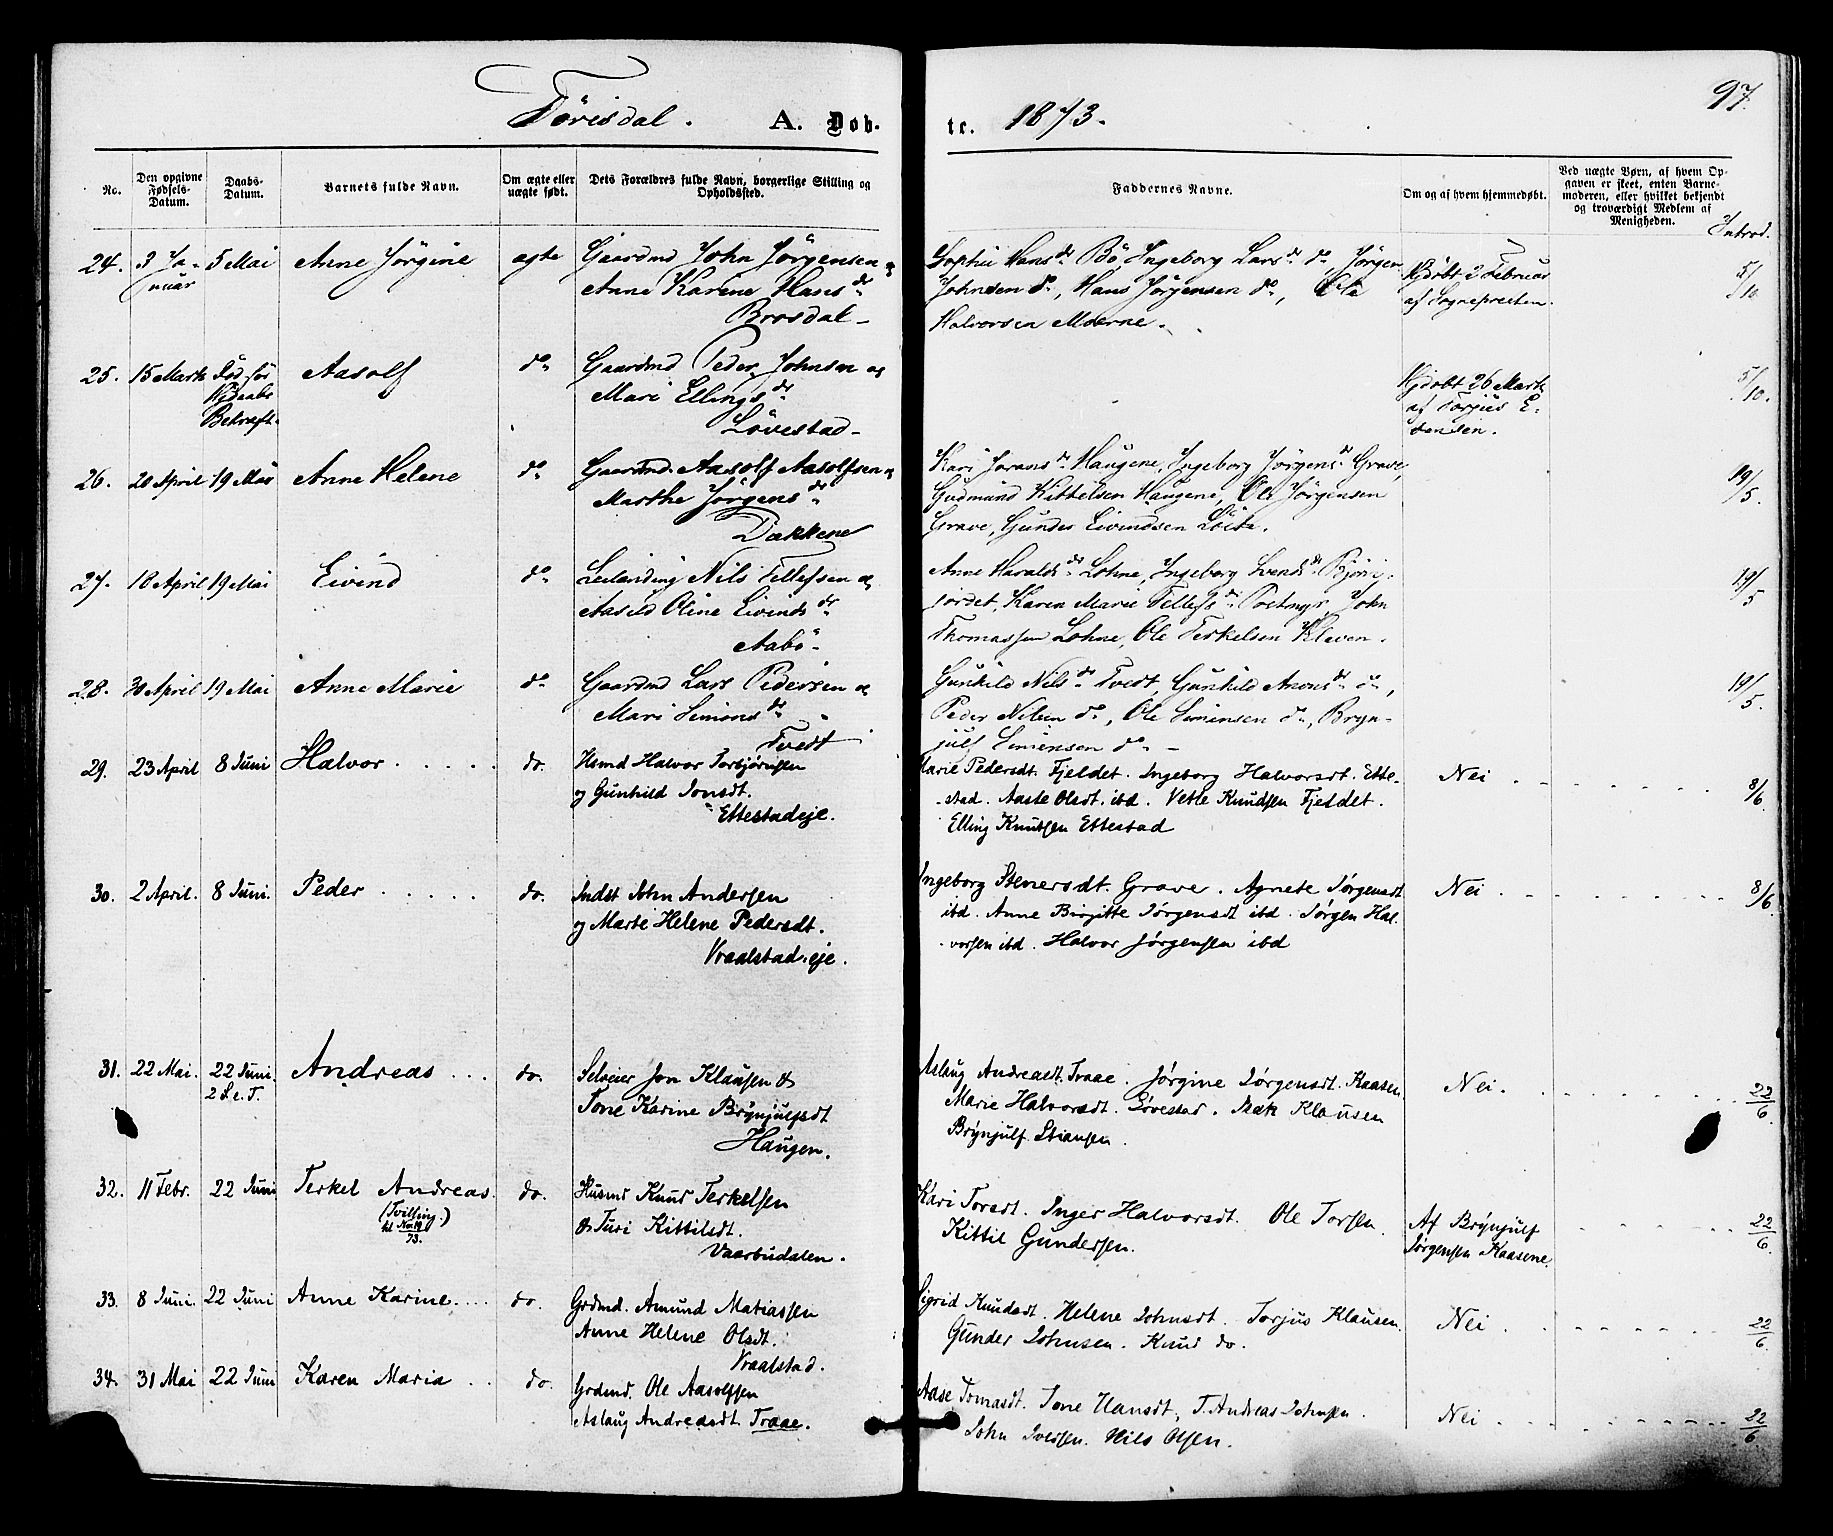 Törisdal. A. Døb-
te. 1873. 97.
No.
Den opgivne Fødsels-Datum.
Daabs-Datum.
Barnets fulde Navn.
Om ægte eller uægte født.
Dets Forældres fulde Navn, borgerlige Stilling og Opholdssted.
Faddernes Navne.
Om og af hvem hjemmedøbt.
Ved uægte Børn, af hvem Opgaven er skeet, enten Barnemoderen, eller hvilket bekjendt og troværdigt Medlem af Menigheden.
Introd.
24. 3 Ja- 5 Mai Anne Jörgine ægte Gaardmd John Jörgensen og
nuar Anne Karine Hans dr
Brosdal
Sophie Hans dr Bö, Ingeborg Lars dr do, Jörgen
Johnsen do, Hans Jörgensen do, Ole
Halvorsen Moerne.
Hjdöbt 2 Februar
af Sognepresten.
5/10
25. 15 Marts Död før Aasolf do Gaardmd Peder Johnsen og
Hjdaabs Mari Ellings dr
Bekræft. Lövestad
Hjdöbt 26 Marts
af Torjus E-
vensen.
5/10.
26. 20 April 19 Mai Anne Helene do Gaardmd. Aasolf Aasolfsen og
Marthe Jörgens dr
Dækkene
Kari Jorans dr Haugene, Ingeborg Jörgens dr Grave,
Gudmund Kittelsen Haugene, Ole Jörgensen
Grave, Gunder Eivindsen Löite.
19/5.
27. 18 April 19 Mai Eivind do Leilænding Nils Tellefsen og
Aasild Oline Eivinds dr
Aabö
Anne Haralds dr Lohne, Ingeborg Svends dr
jordet, Karen Marie Tellefs dr John
Thomassen Lohne, Ole Terkelsen Kleven.
19/5
28. 30 April 19 Mai Anne Marie do Gaardmd Lars Pedersen og
Mari Simons dr
Tvedt
Gunhild Nils dr Tvedt, Gunhild Arons dr do,
Peder Nilsen do, Ole Simensen do, Bryn-
julf Simensen do
19/5.
29. 23 April 8 Juni Halvor do. Husmd Halvor Torbjørnsen
og Gunhild Jonsdt.
Ettestadeje.
Marie Pedersdt. Fjeldet. Ingeborg Halvorsdt. Ette-
stad. Aaste Olsdt. ibd. Vetle Knudsen Fjeldet.
Elling Knutsen Ettestad
Nei
8/6.
30. 2 April. 8 Juni. Peder do. Indst John Andersen
og Marte Helene Pedersdt.
Vraalstad.eje.
Ingeborg Stenersdt. Grave. Agnete Jørgensdt
ibd. Anne Birgitte Jørgensdt ibd. Jørgen Hal-
vorsen ibd. Halvor Jørgensen ibd
Nei
8/6.
31. 22 Mai. 22 Juni. Andreas do. Selveier Jon Klausen &
2 S. e. T. Tone Karine Brynjulfsdt
Haugen.
Aslaug Andreasdt. Traae. Jørgine Jørgensdt. Kaasen
Marie Halvorsdt. Lövestad. Isak Klausen
Brynjulf Stiansen.
Nei.
22/6.
32. 11 Febr. 22 Juni Terkel Andreas. do. Husmd Knud Terkelsen
(Tvilling & Turi Kittilsdt.
til No 19/73.) Vaarbudalen.
Kari Torsdt. Inger Halvorsdt. Ole Torsen.
Kittil Gundersen.
Af Brynjulf
Jørgensen Kaasene.
22/6.
33. 8 Juni. 22 Juni Anne Karine. do. Grdmd. Amund Matiassen
Anne Helene Olsdt.
Vraalstad.
Sigrid Knudsdt. Helene Johnsdt. Torjus Klausen.
Gunder Johnsen. Knud do.
Nei
22/6.
34. 31 Mai 22 Juni Karen Maria do. Grdmd. Ole Aasolfsen
Aslaug Andreasdt. Traae.
Aase Tomasdt. Tone Hansdt, T. Andreas Johnsen.
John Iversen. Nils Olsen.
Nei
22/6.